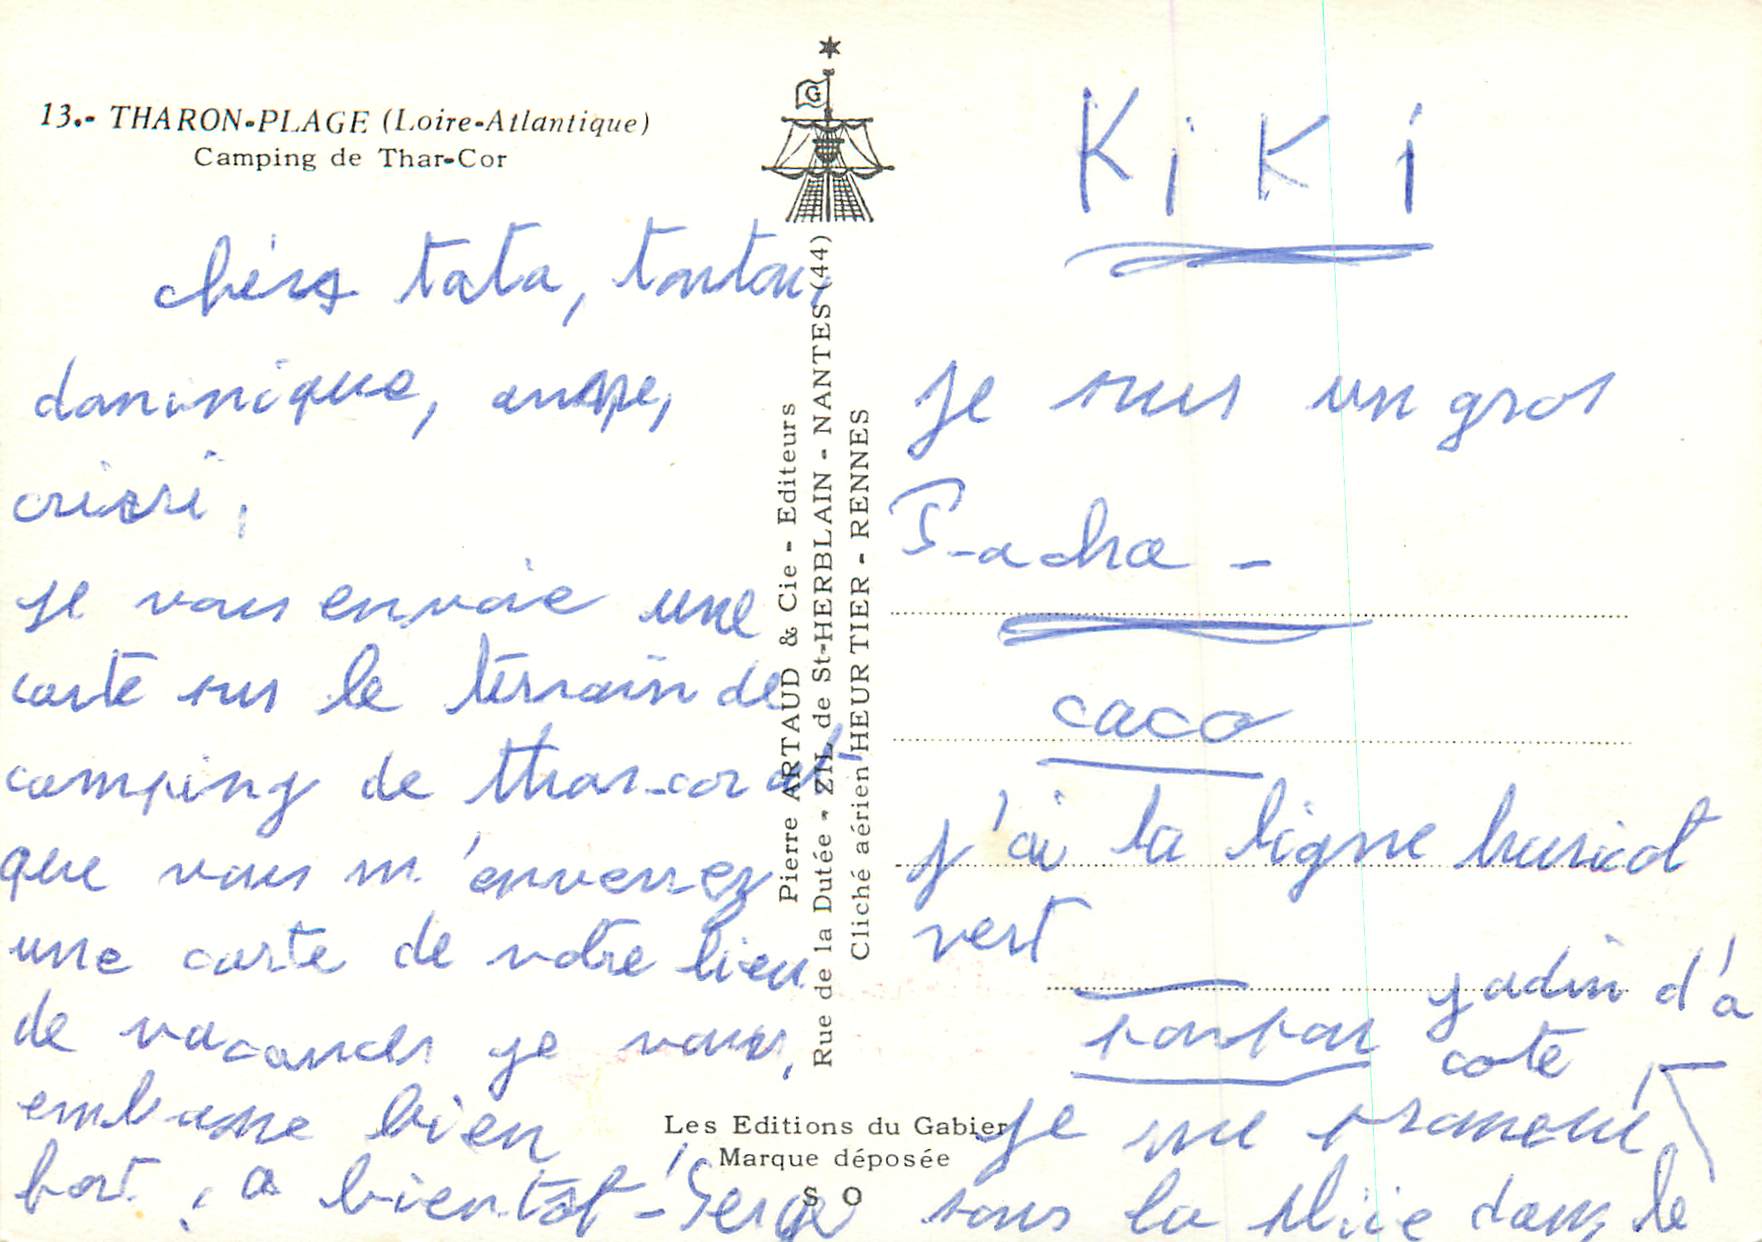 13.- THARON-PLAGE (Loire-Atlantique)
Camping de Thar-Cor
chèrs tata, tonton,
daninique, ange,
cricri,
je vous envoie une
carte sur le terrain de
camping de thar-cor
que vous m'enverrez
une carte de votre lieu
de vacances je vous,
embrasse bien
fort, a bientôt - Serge
G
Pierre ARTAUD & Cie - Editeurs
Rue de la Dutée - ZIL de St-HERBLAIN - NANTES (44)
Cliché aérien HEURTIER - RENNES
Les Editions du Gabier
Marque déposée
S O
KiKi
je suis un gros
Pacha -
caco
j'ai la ligne haricot
vert
Ponpon
je me promène
sous la pluie dans le
jadin d'a
cote